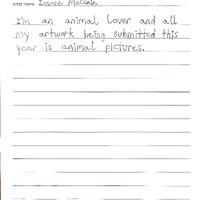 Artist Name
I'm an animal lover and all
my artwork being submitted this
year is animal pictures.